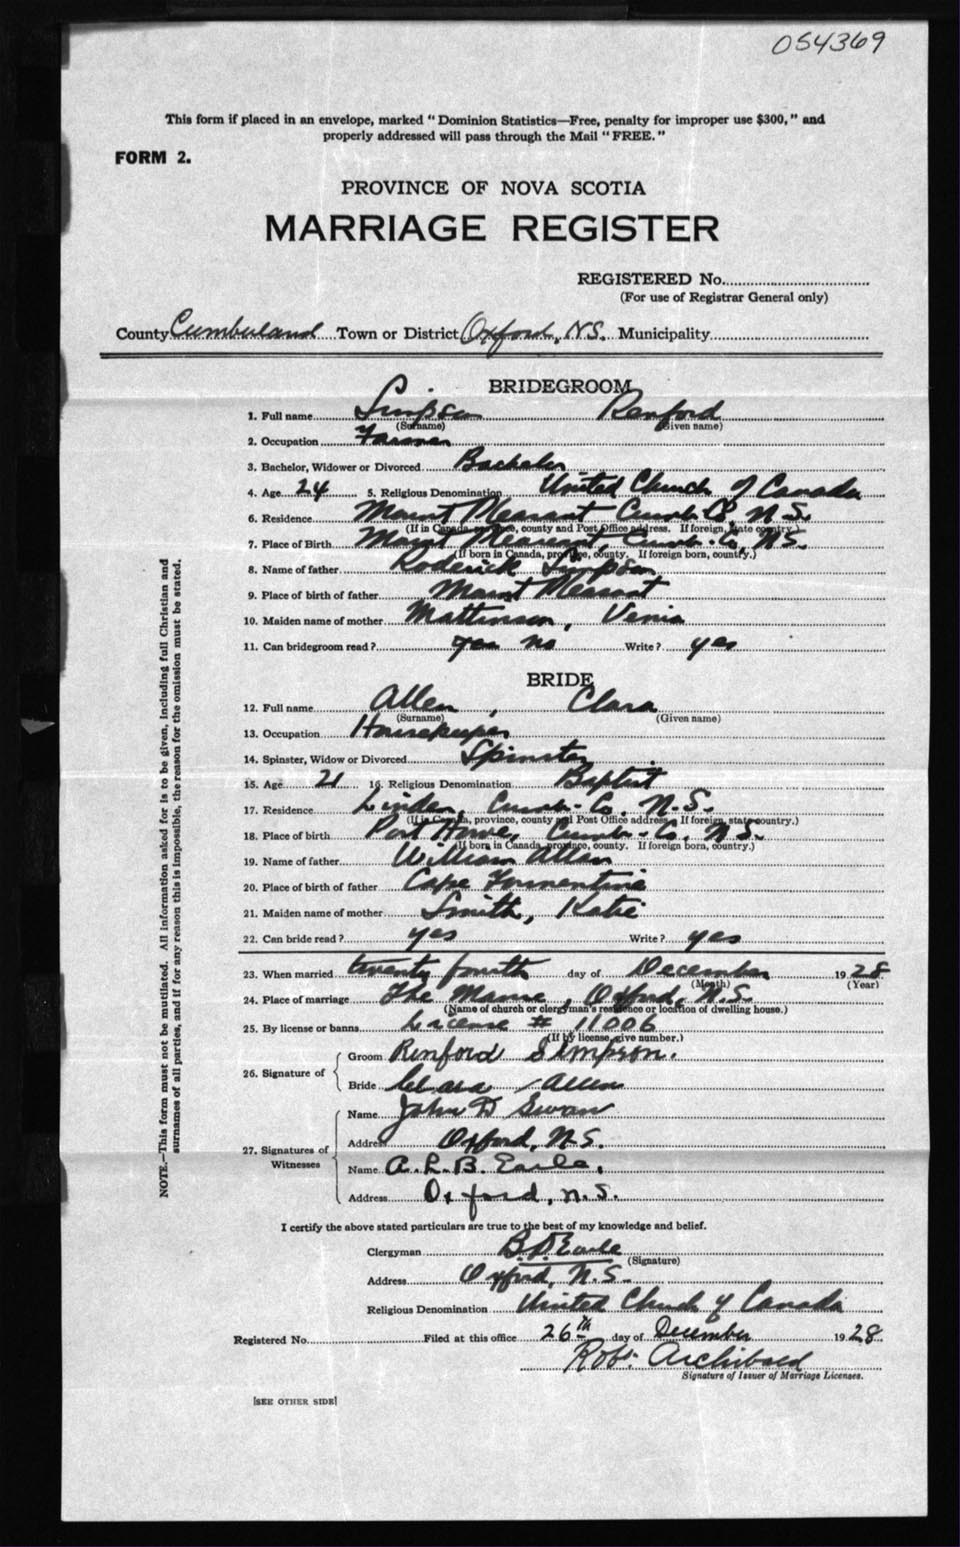 054369
This form if placed in an envelope, marked "Dominion Statistics—Free, penalty for improper use $300," and
properly addressed will pass through the Mail "FREE."
FORM 2.
PROVINCE OF NOVA SCOTIA
MARRIAGE REGISTER
REGISTERED No.
(For use of Registrar General only)
County Cumberland Town or District Oxford, N.S. Municipality
BRIDEGROOM
1. Full name Simpson Renford
(Surname) (Given name)
2. Occupation Farmer
3. Bachelor, Widower or Divorced Bachelor
4. Age 24 5. Religious Denomination United Church of Canada
6. Residence Mount Pleasant Cumb. Co. N.S.
(If in Canada, province, county and Post Office address. If foreign, state country.)
7. Place of Birth Mount Pleasant, Cumb. Co, N.S.
(If born in Canada, province, county. If foreign born, country.)
8. Name of father Roderick Simpson
9. Place of birth of father Mount Pleasant
10. Maiden name of mother Mattinson, Venia
11. Can bridegroom read? yes no Write? yes
BRIDE
12. Full name Allen, Clara
(Surname) (Given name)
13. Occupation Housekeeper
14. Spinster, Widow or Divorced Spinster
15. Age 21 16. Religious Denomination Baptist
17. Residence Linden, Cumb. Co. N.S.
(If in Canada, province, county and Post Office address. If foreign, state country.)
18. Place of birth Port Howe, Cumb. Co. N.S.
(If born in Canada, province, county. If foreign born, country.)
19. Name of father William Allen
20. Place of birth of father Cape Tormentine
21. Maiden name of mother Smith, Katie
22. Can bride read? yes Write? yes
23. When married twenty fourth day of December 1928
(Month) (Year)
24. Place of marriage The Manse, Oxford, N.S.
(Name of church or clergyman's residence or location of dwelling house.)
25. By license or banns License # 11006
(If by license, give number.)
26. Signature of Groom Renford Simpson.
Bride Clara Allen
27. Signatures of Witnesses Name John D Swan
Address Oxford, N.S.
Name A. L. B. Earle,
Address Oxford, N.S.
I certify the above stated particulars are true to the best of my knowledge and belief.
Clergyman B.D. Earle
(Signature)
Address Oxford, N.S.
Religious Denomination United Church of Canada
Registered No. Filed at this office 26th day of December 1928
Robt. Archibald
Signature of Issuer of Marriage Licenses.
[SEE OTHER SIDE]
NOTE.—This form must not be mutilated. All information asked for is to be given, including full Christian and
surnames of all parties, and if for any reason this is impossible, the reason for the omission must be stated.